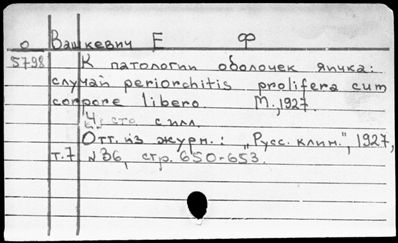 о Вашкевич Е Ф
5798 К патологии оболочек яичка:
случай periorchitis prolifera cum
corpore libero. М., 1927.
с илл.
Отт. из журн.: „Русс. клин.", 1927,
т.7, №36, стр. 650-653.